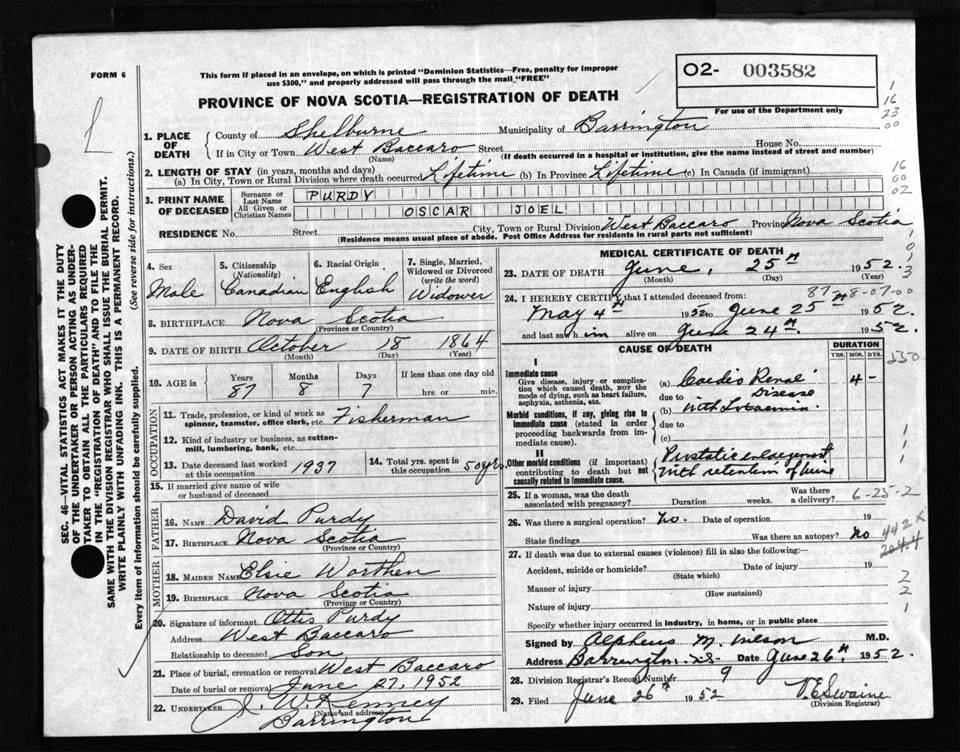 FORM 6
This form if placed in an envelope, on which is printed "Dominion Statistics—Free, penalty for improper
use $300," and properly addressed will pass through the mail "FREE"
O2- 003582
For use of the Department only
PROVINCE OF NOVA SCOTIA—REGISTRATION OF DEATH
1
16
23
00
1. PLACE OF DEATH
County of Shelburne Municipality of Barrington
If in City or Town West Baccaro Street House No.
(Name) (If death occurred in a hospital or institution, give the name instead of street and number)
2. LENGTH OF STAY (in years, months and days)
(a) In City, Town or Rural Division where death occurred Lifetime (b) In Province Lifetime (c) In Canada (if immigrant)
16
60
02
3. PRINT NAME OF DECEASED
Surname or Last Name PURDY
All Given or Christian Names OSCAR JOEL
RESIDENCE No. Street City, Town or Rural Division West Baccaro Province Nova Scotia
(Residence means usual place of abode. Post Office Address for residents in rural parts not sufficient)
SEC. 46—VITAL STATISTICS ACT MAKES IT THE DUTY
OF THE UNDERTAKER OR PERSON ACTING AS UNDER-
TAKER TO OBTAIN ALL THE PARTICULARS REQUIRED
IN THE "REGISTRATION OF DEATH" AND TO FILE THE
SAME WITH THE DIVISION REGISTRAR WHO SHALL ISSUE THE BURIAL PERMIT.
WRITE PLAINLY WITH UNFADING INK. THIS IS A PERMANENT RECORD.
Every item of information should be carefully supplied. (See reverse side for instructions.)
4. Sex
Male
5. Citizenship
(Nationality)
Canadian
6. Racial Origin
English
7. Single, Married,
Widowed or Divorced
(write the word)
Widower
8. BIRTHPLACE Nova Scotia
(Province or Country)
9. DATE OF BIRTH October 18 1864
(Month) (Day) (Year)
10. AGE in
Years Months Days If less than one day old
87 8 7 hrs. or min.
OCCUPATION
11. Trade, profession, or kind of work as
spinner, teamster, office clerk, etc. Fisherman
12. Kind of industry or business, as cotton-
mill, lumbering, bank, etc.
13. Date deceased last worked
at this occupation 1937
14. Total yrs. spent in
this occupation 50 yrs.
15. If married give name of wife
or husband of deceased
FATHER
16. NAME David Purdy
17. BIRTHPLACE Nova Scotia
(Province or Country)
MOTHER
18. MAIDEN NAME Elsie Worthen
19. BIRTHPLACE Nova Scotia
(Province or Country)
20. Signature of informant Ottis Purdy
Address West Baccaro
Relationship to deceased Son
21. Place of burial, cremation or removal West Baccaro
Date of burial or removal June 27, 1952
22. UNDERTAKER J. W. Kenney
(Name and address)
Barrington
MEDICAL CERTIFICATE OF DEATH
23. DATE OF DEATH June, 25th 1952.
(Month) (Day) (Year)
24. I HEREBY CERTIFY that I attended deceased from:
May 4th 1952 to June 25th 1952.
and last saw him alive on June 24th 1952.
CAUSE OF DEATH
DURATION
YRS. MOS. DYS.
I
Immediate cause
Give disease, injury or complica-
tion which caused death, NOT the
mode of dying, such as heart failure,
asphyxia, asthenia, etc.
(a) Cardio Renal 4 -
Disease
due to
Morbid conditions, if any, giving rise to
immediate cause (stated in order
proceeding backwards from im-
mediate cause).
(b) with
due to
(c)
II
Other morbid conditions (if important)
contributing to death but not
causally related to immediate cause.
Prostatic enlargement
with retention of urine
25. If a woman, was the death
associated with pregnancy? Duration weeks. Was there
a delivery?
6-25-2
26. Was there a surgical operation? No. Date of operation 19
State findings Was there an autopsy? No
442X
27. If death was due to external causes (violence) fill in also the following:—
Accident, suicide or homicide? Date of injury 19
(State which)
Manner of injury
(How sustained)
Nature of injury
Specify whether injury occurred in industry, in home, or in public place
Signed by Alpheus M. Wilson M.D.
Address Barrington N.S. Date June 26th 1952.
28. Division Registrar's Record Number 9
29. Filed June 26th 1952 T. E. Swaine
(Division Registrar)